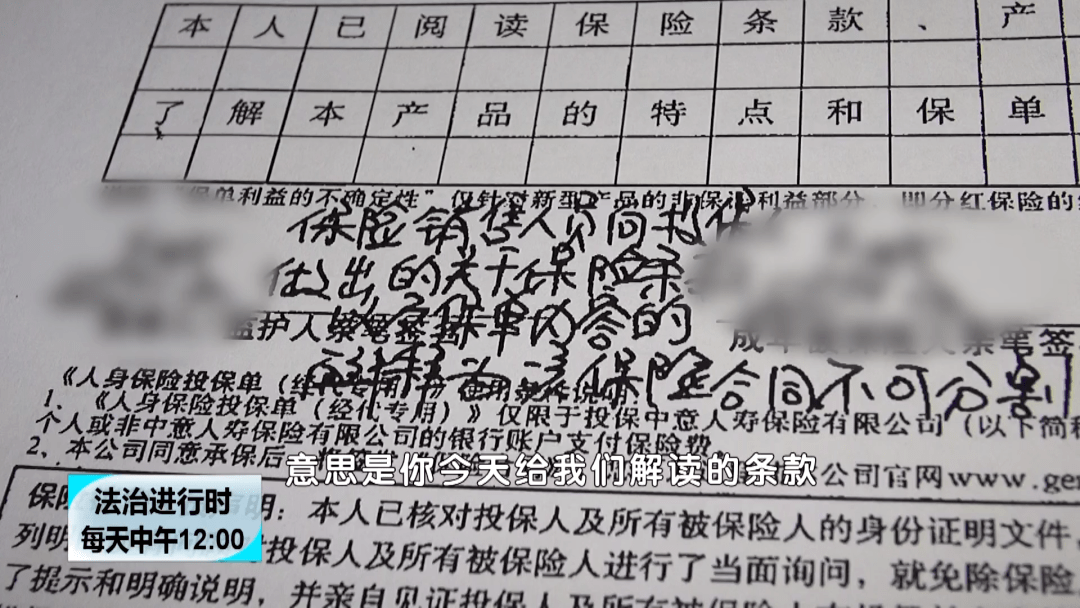 本人已阅读保险条款、产
了解本产品的特点和保单
保单利益的不确定性”仅针对新型产品的非保证利益部分，即分红保险的
保险销售人员向投保
做出的关于保险条
保单内容的
解释为该保险合同不可分割
监护人亲笔签
成年被保险人亲笔签
《人身保险投保单（经代专用）》使用条件说明
1、《人身保险投保单（经代专用）》仅限于投保中意人寿保险有限公司（以下简称
个人或非中意人寿保险有限公司的银行账户支付保险费
2、本公司同意承保后
公司官网www.gen
意思是你今天给我们解读的条款
保险
明：本人已核对投保人及所有被保险人的身份证明文件，
列明
投保人及所有被保险人进行了当面询问，就免除保险
了提示和明确说明，并亲自见证投保人及所有被保险人在
法治进行时
每天中午12:00